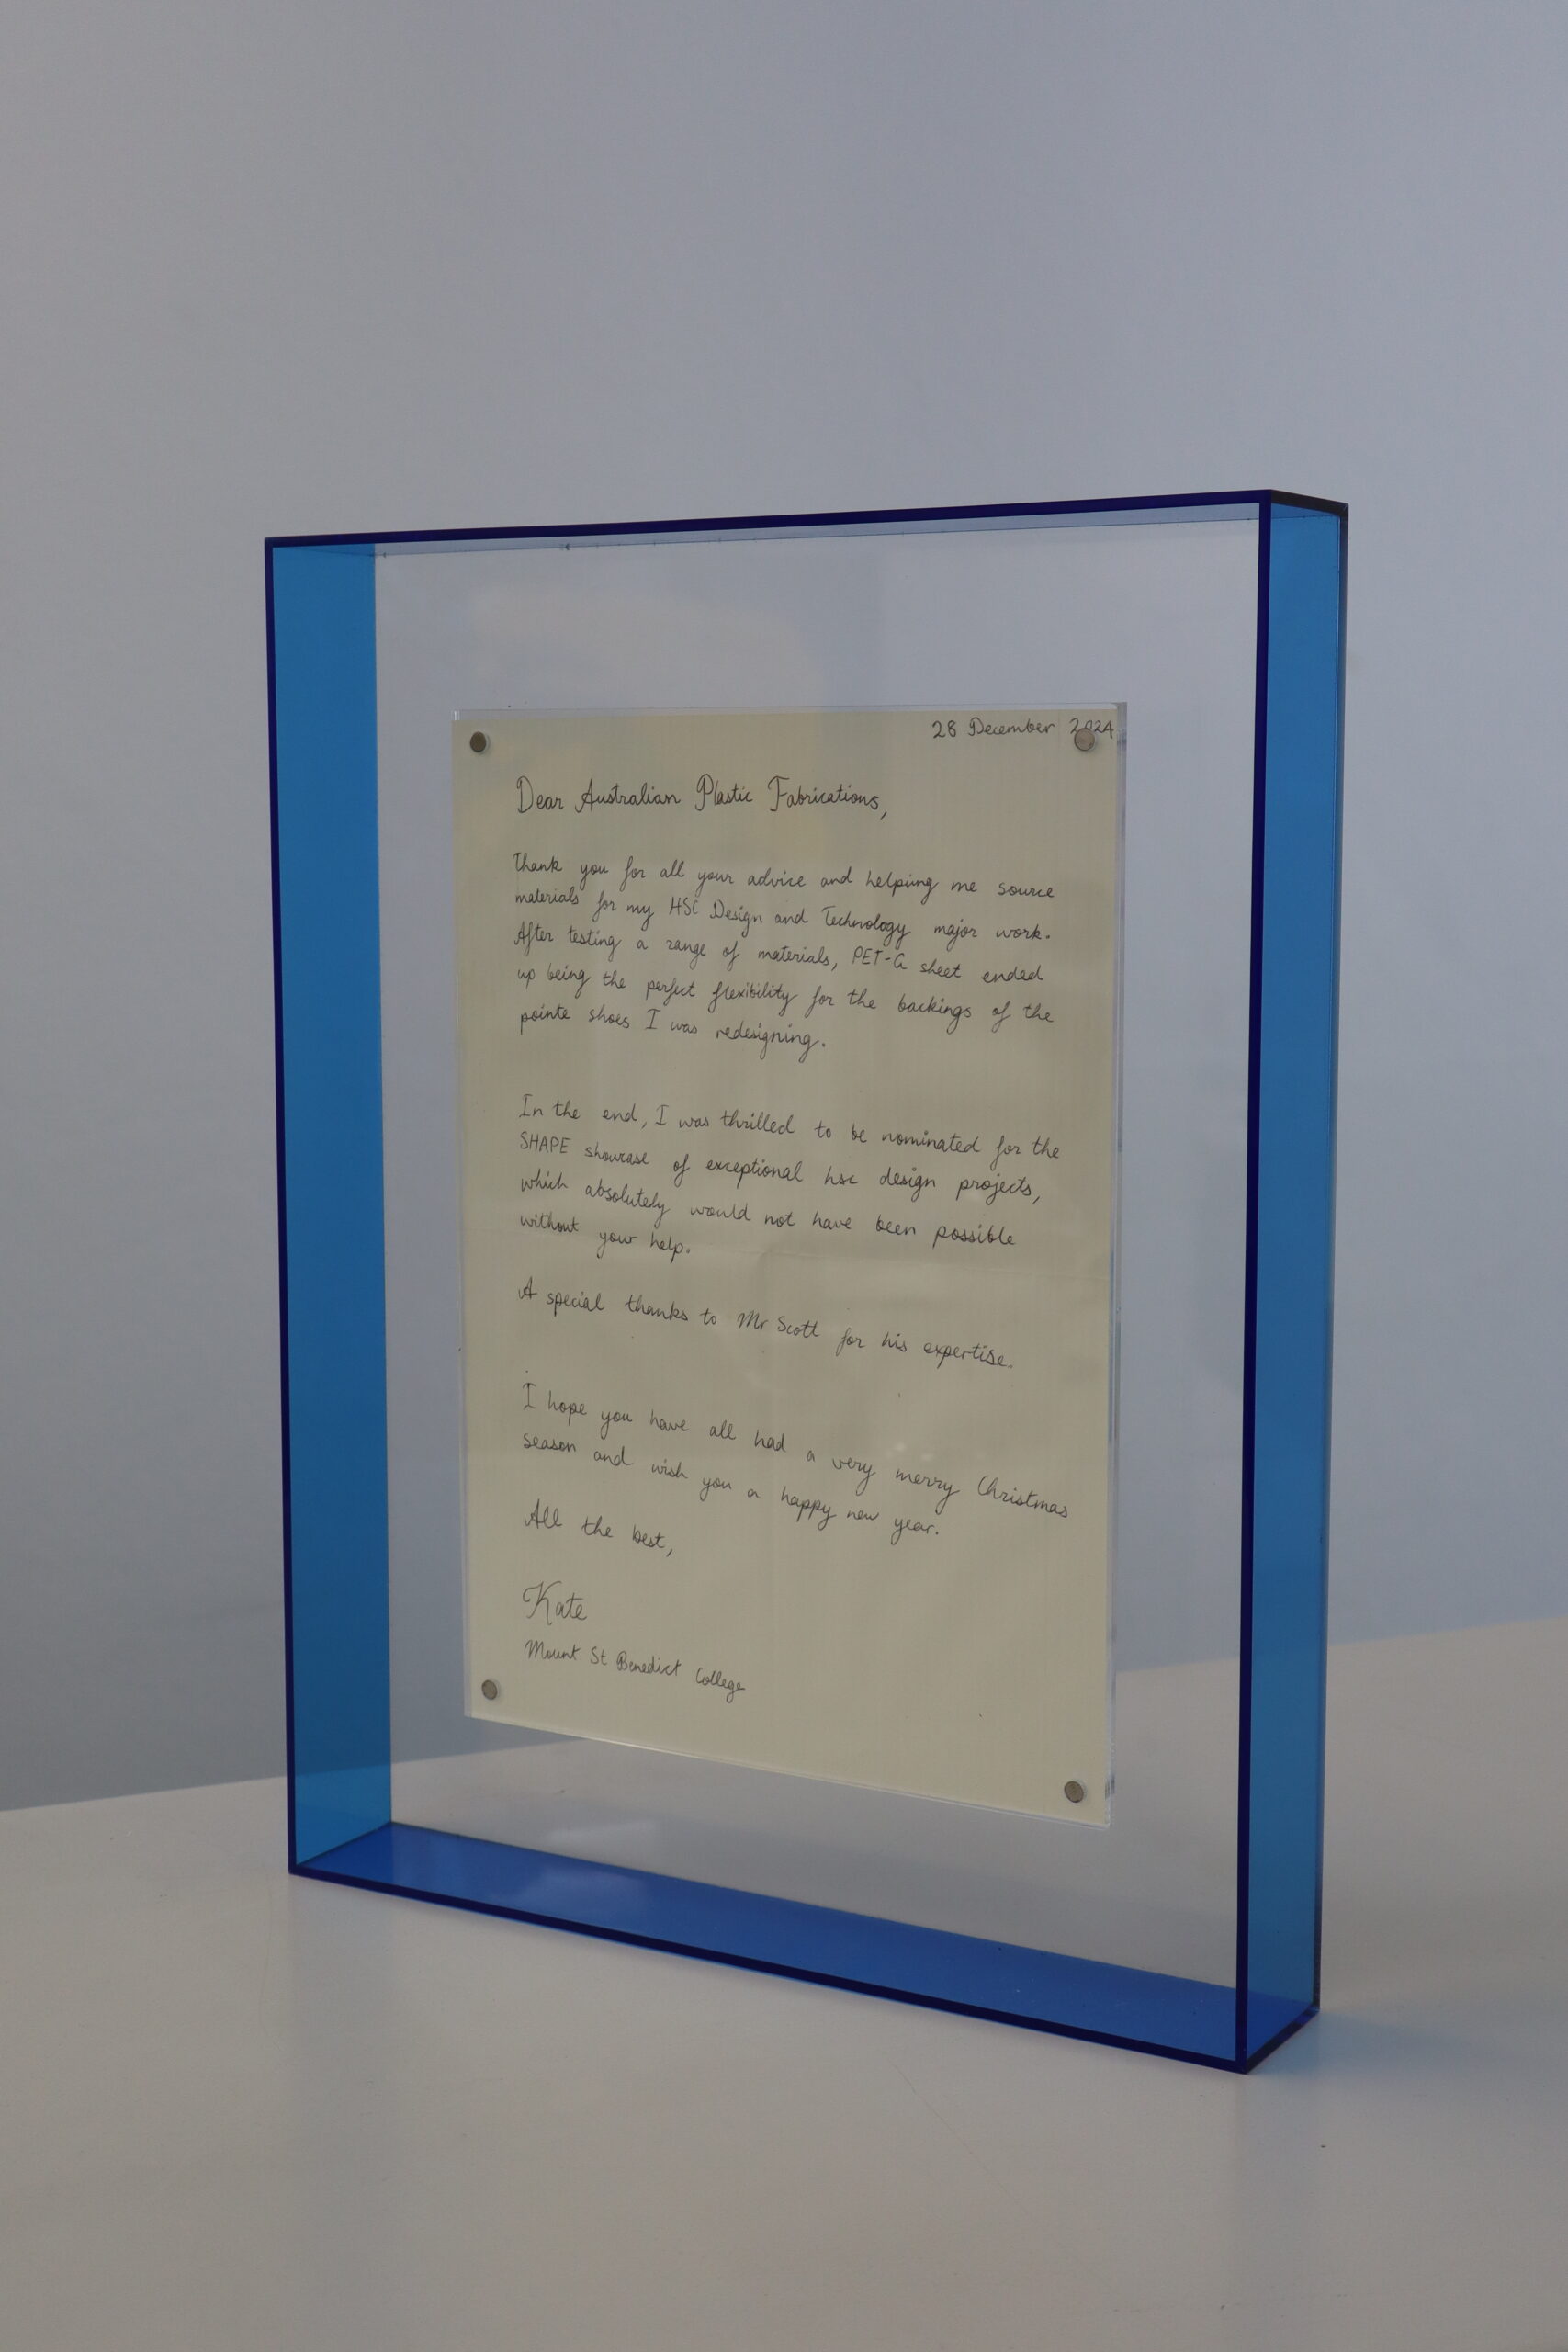 28 December 2024
Dear Australian Plastic Fabrications,
Thank you for all your advice and helping me source
materials for my HSC Design and Technology major work.
After testing a range of materials, PET-G sheet ended
up being the perfect flexibility for the backings of the
pointe shoes I was redesigning.
In the end, I was thrilled to be nominated for the
SHAPE showcase of exceptional hsc design projects,
which absolutely would not have been possible
without your help.
A special thanks to Mr Scott for his expertise.
I hope you have all had a very merry Christmas
season and wish you a happy new year.
All the best,
Kate
Mount St Benedict College